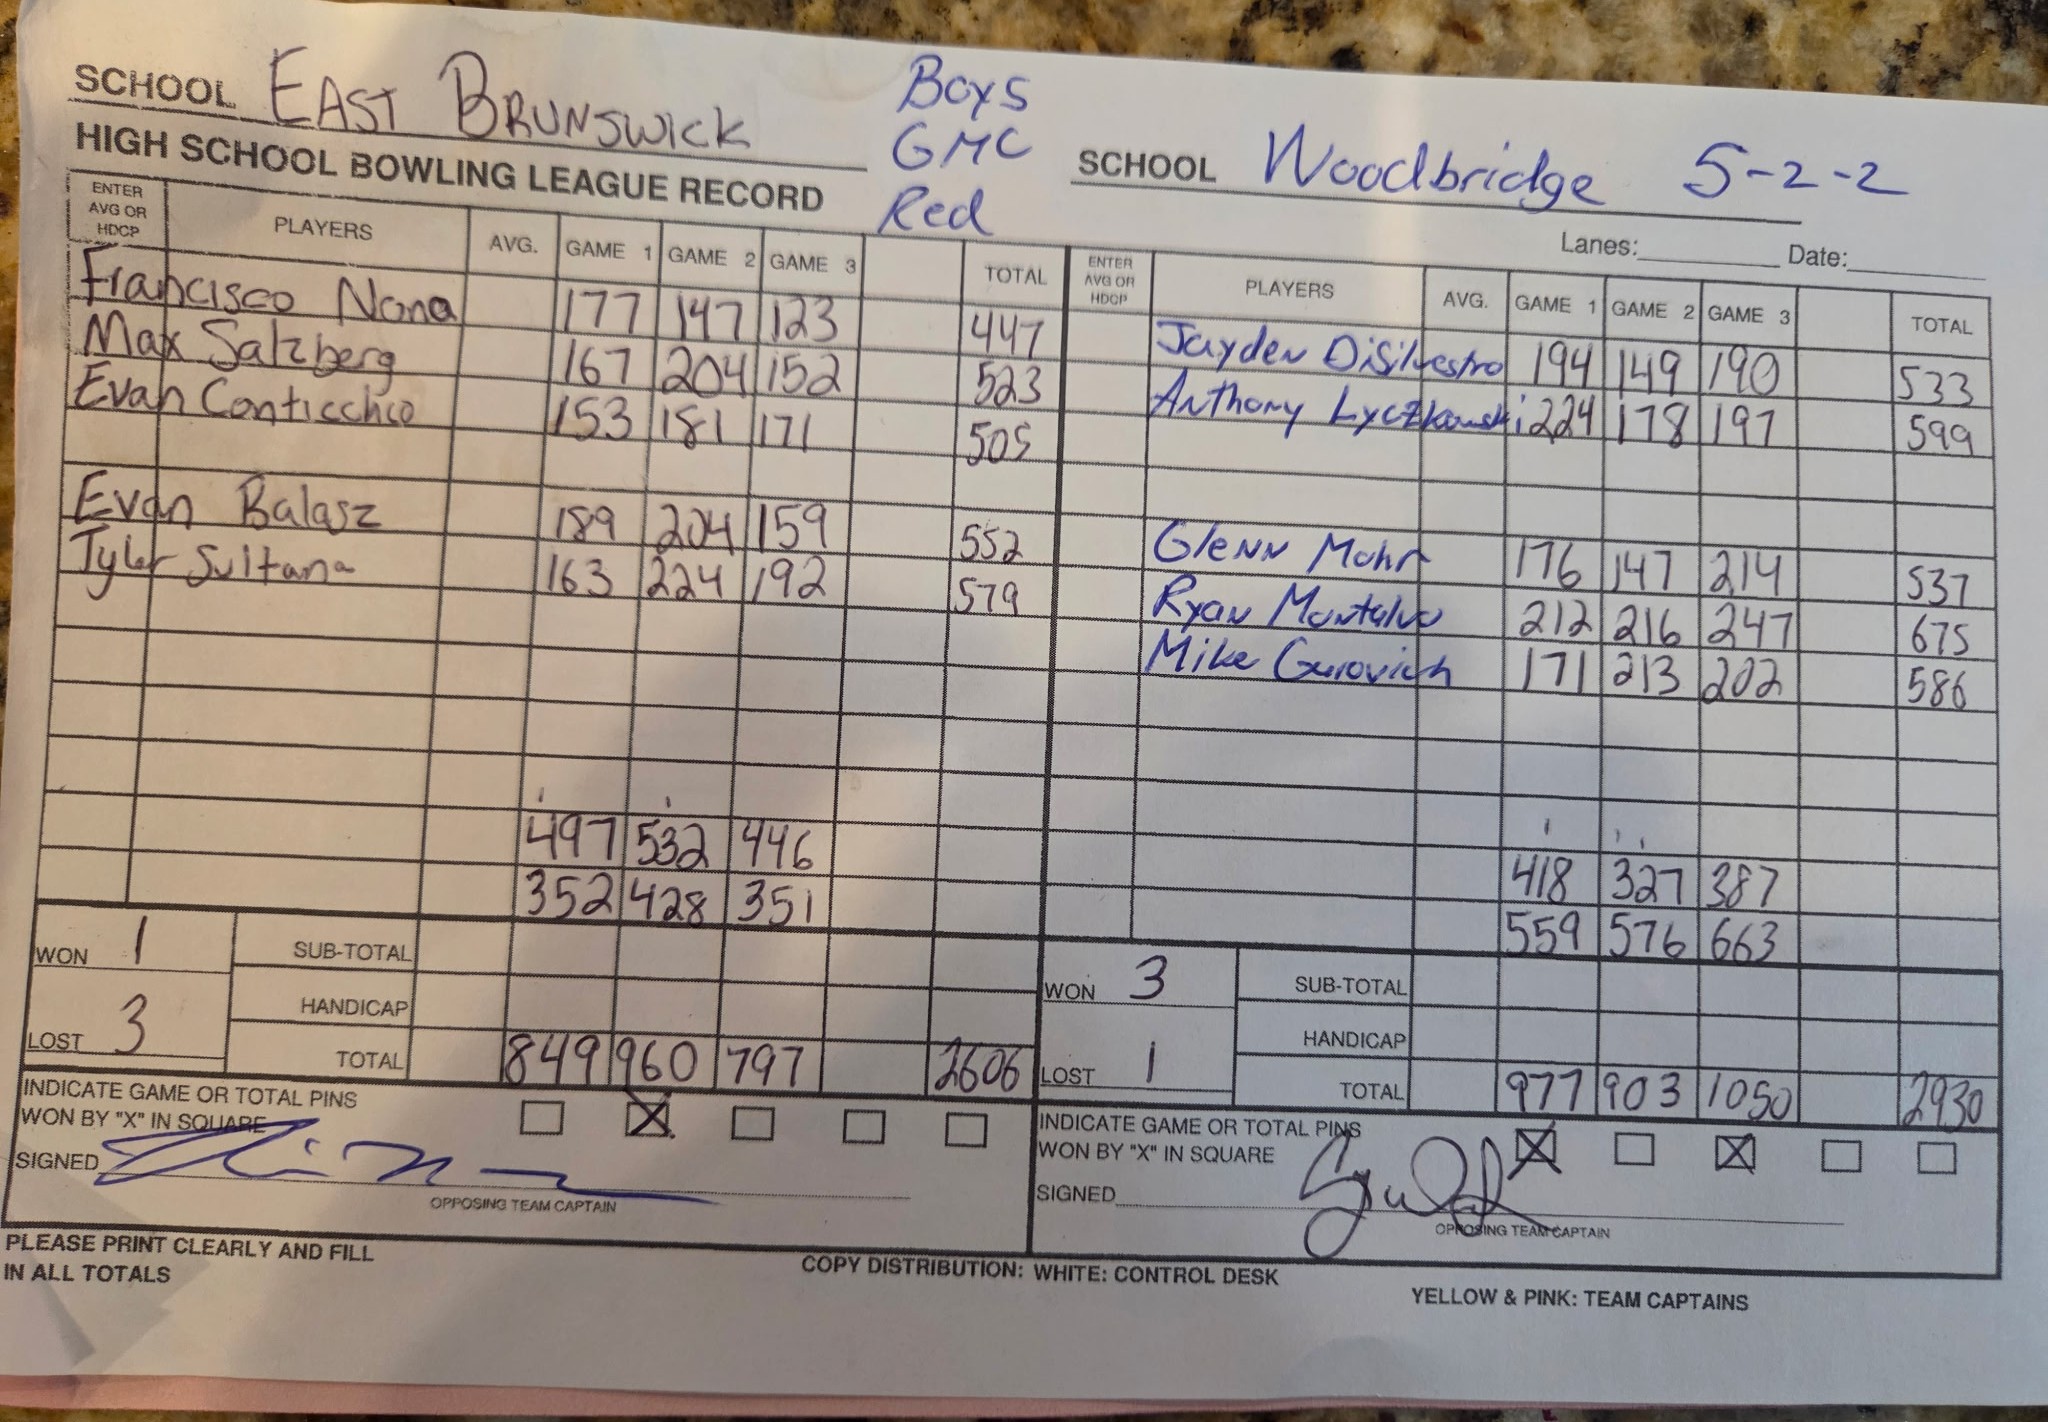 SCHOOL EAST BRUNSWICK
Boys
GMC
Red
HIGH SCHOOL BOWLING LEAGUE RECORD
SCHOOL Woodbridge 5-2-2
Lanes: Date:
ENTER AVG OR HDCP PLAYERS AVG. GAME 1 GAME 2 GAME 3 TOTAL
Francisco Nona 177 147 123 447
Max Salzberg 167 204 152 523
Evan Conticchio 153 181 171 505
Evan Balasz 189 204 159 552
Tyler Sultana 163 224 192 579
497 532 446
352 428 351
WON 1 SUB-TOTAL
HANDICAP
LOST 3
TOTAL 849 960 797 2606
INDICATE GAME OR TOTAL PINS
WON BY "X" IN SQUARE
SIGNED
OPPOSING TEAM CAPTAIN
ENTER AVG OR HDCP PLAYERS AVG. GAME 1 GAME 2 GAME 3 TOTAL
Jayden DiSilvestro 194 149 190 533
Anthony Lyczkowski 224 178 197 599
Glenn Mohr 176 147 214 537
Ryan Montalvo 212 216 247 675
Mike Gurovich 171 213 202 586
418 327 387
559 576 663
WON 3 SUB-TOTAL
HANDICAP
LOST 1
TOTAL 977 903 1050 2930
INDICATE GAME OR TOTAL PINS
WON BY "X" IN SQUARE
SIGNED
OPPOSING TEAM CAPTAIN
PLEASE PRINT CLEARLY AND FILL
IN ALL TOTALS
COPY DISTRIBUTION: WHITE: CONTROL DESK
YELLOW & PINK: TEAM CAPTAINS